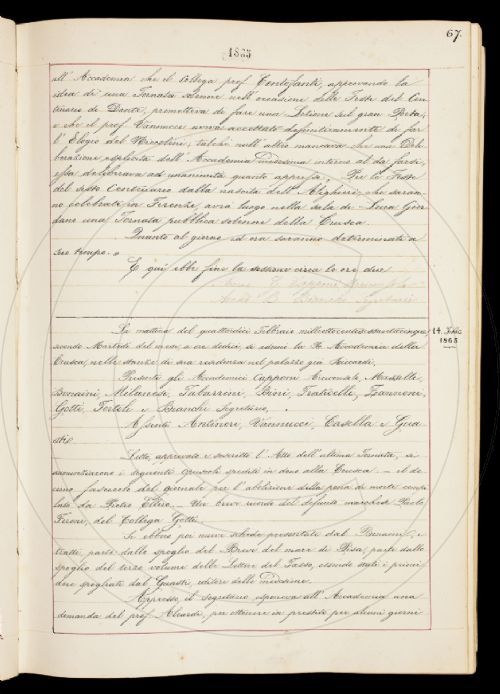 67.
1865
all' Accademia che il Collega prof. Centofanti, approvando la
idea di una Tornata solenne nell'occasione delle Feste del Cen-
tenario di Dante, prometteva di fare una Lezione sul gran Poeta,
e che il prof. Vannucci aveva accettato definitivamente di far
l'Elogio del Niccolini; talché null'altro mancava che una Deli-
berazione esplicita dell'Accademia medesima intorno al da farsi,
essa deliberava ad unanimità quanto appresso. Per le Feste
del sesto Centenario dalla nascita dell'Alighieri, che saran-
no celebrate in Firenze, avrà luogo nella sala di Luca Gior-
dano una Tornata pubblica solenne della Crusca.
Quanto al giorno ed ora saranno determinate a
suo tempo.
E qui ebbe fine la sessione circa le ore due.
G. Capponi Arciconsolo
B. Bianchi Segretario
14. Febb.
1865
La mattina del quattordici Febbraio milleottocentosessantacinque,
secondo Martedì del mese, a ore dodici, si adunò la R. Accademia della
Crusca, nelle stanze di sua residenza nel palazzo già Riccardi.
Presenti gli Accademici Capponi Arciconsolo, Masselli,
Bonaini, Milanesi, Tabarrini, Bini, Fraticelli,
Gotti, Tortoli e Bianchi Segretario.
Assenti Antinori, Vannucci, Casella e Gua-
sti.
Letto, approvato e soscritto l'Atto dell'ultima Tornata, si
annunziarono i seguenti opuscoli spediti in dono alla Crusca. - il de-
cimo fascicolo del giornale per l'abolizione della pena di morte compi-
lato da Pietro Ellero. - Un breve ricordo del defunto marchese Paolo
Feroni, del Collega Gotti.
Si ebbero poi nuove schede presentate dal Bonaini, e
tratte, parte dallo spoglio del Breve del mare di Pisa, parte dallo
spoglio del terzo volume delle Lettere del Tasso, essendo stati i primi
due spogliati dal Guasti, editore delle medesime.
Appresso, il segretario esponeva all'Accademia una
domanda del prof. Aleardi, per ottenere in prestito per alcuni giorni